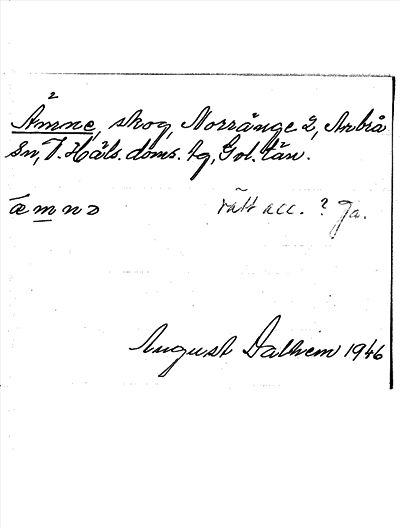 2
Ämne, skog, Norränge 2, Arbrå
Sn, V. Häls. doms. tg, Gvl. län.
æmnə rätt acc. ? Ja.
August Dalhem 1946